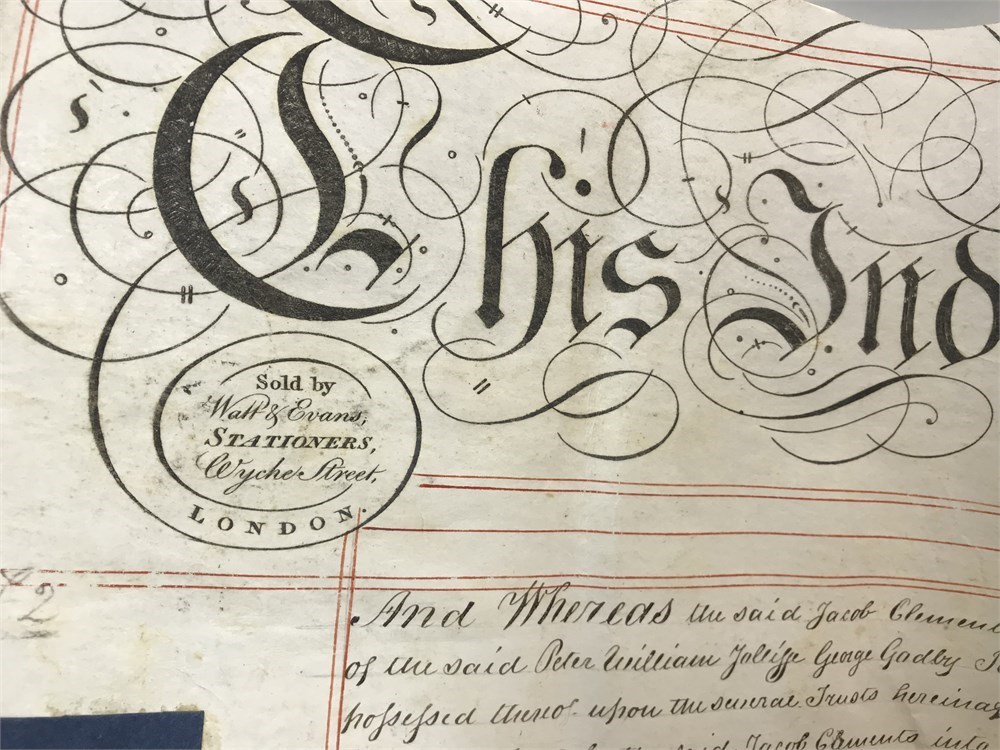 This Ind
Sold by
Watt & Evans,
STATIONERS,
Wyche Street,
LONDON.
2
And Whereas the said Jacob Clemen
of the said Peter William Jolliffe George Gadby
possessed thereof upon the several Trusts hereina
said Jacob Clements into